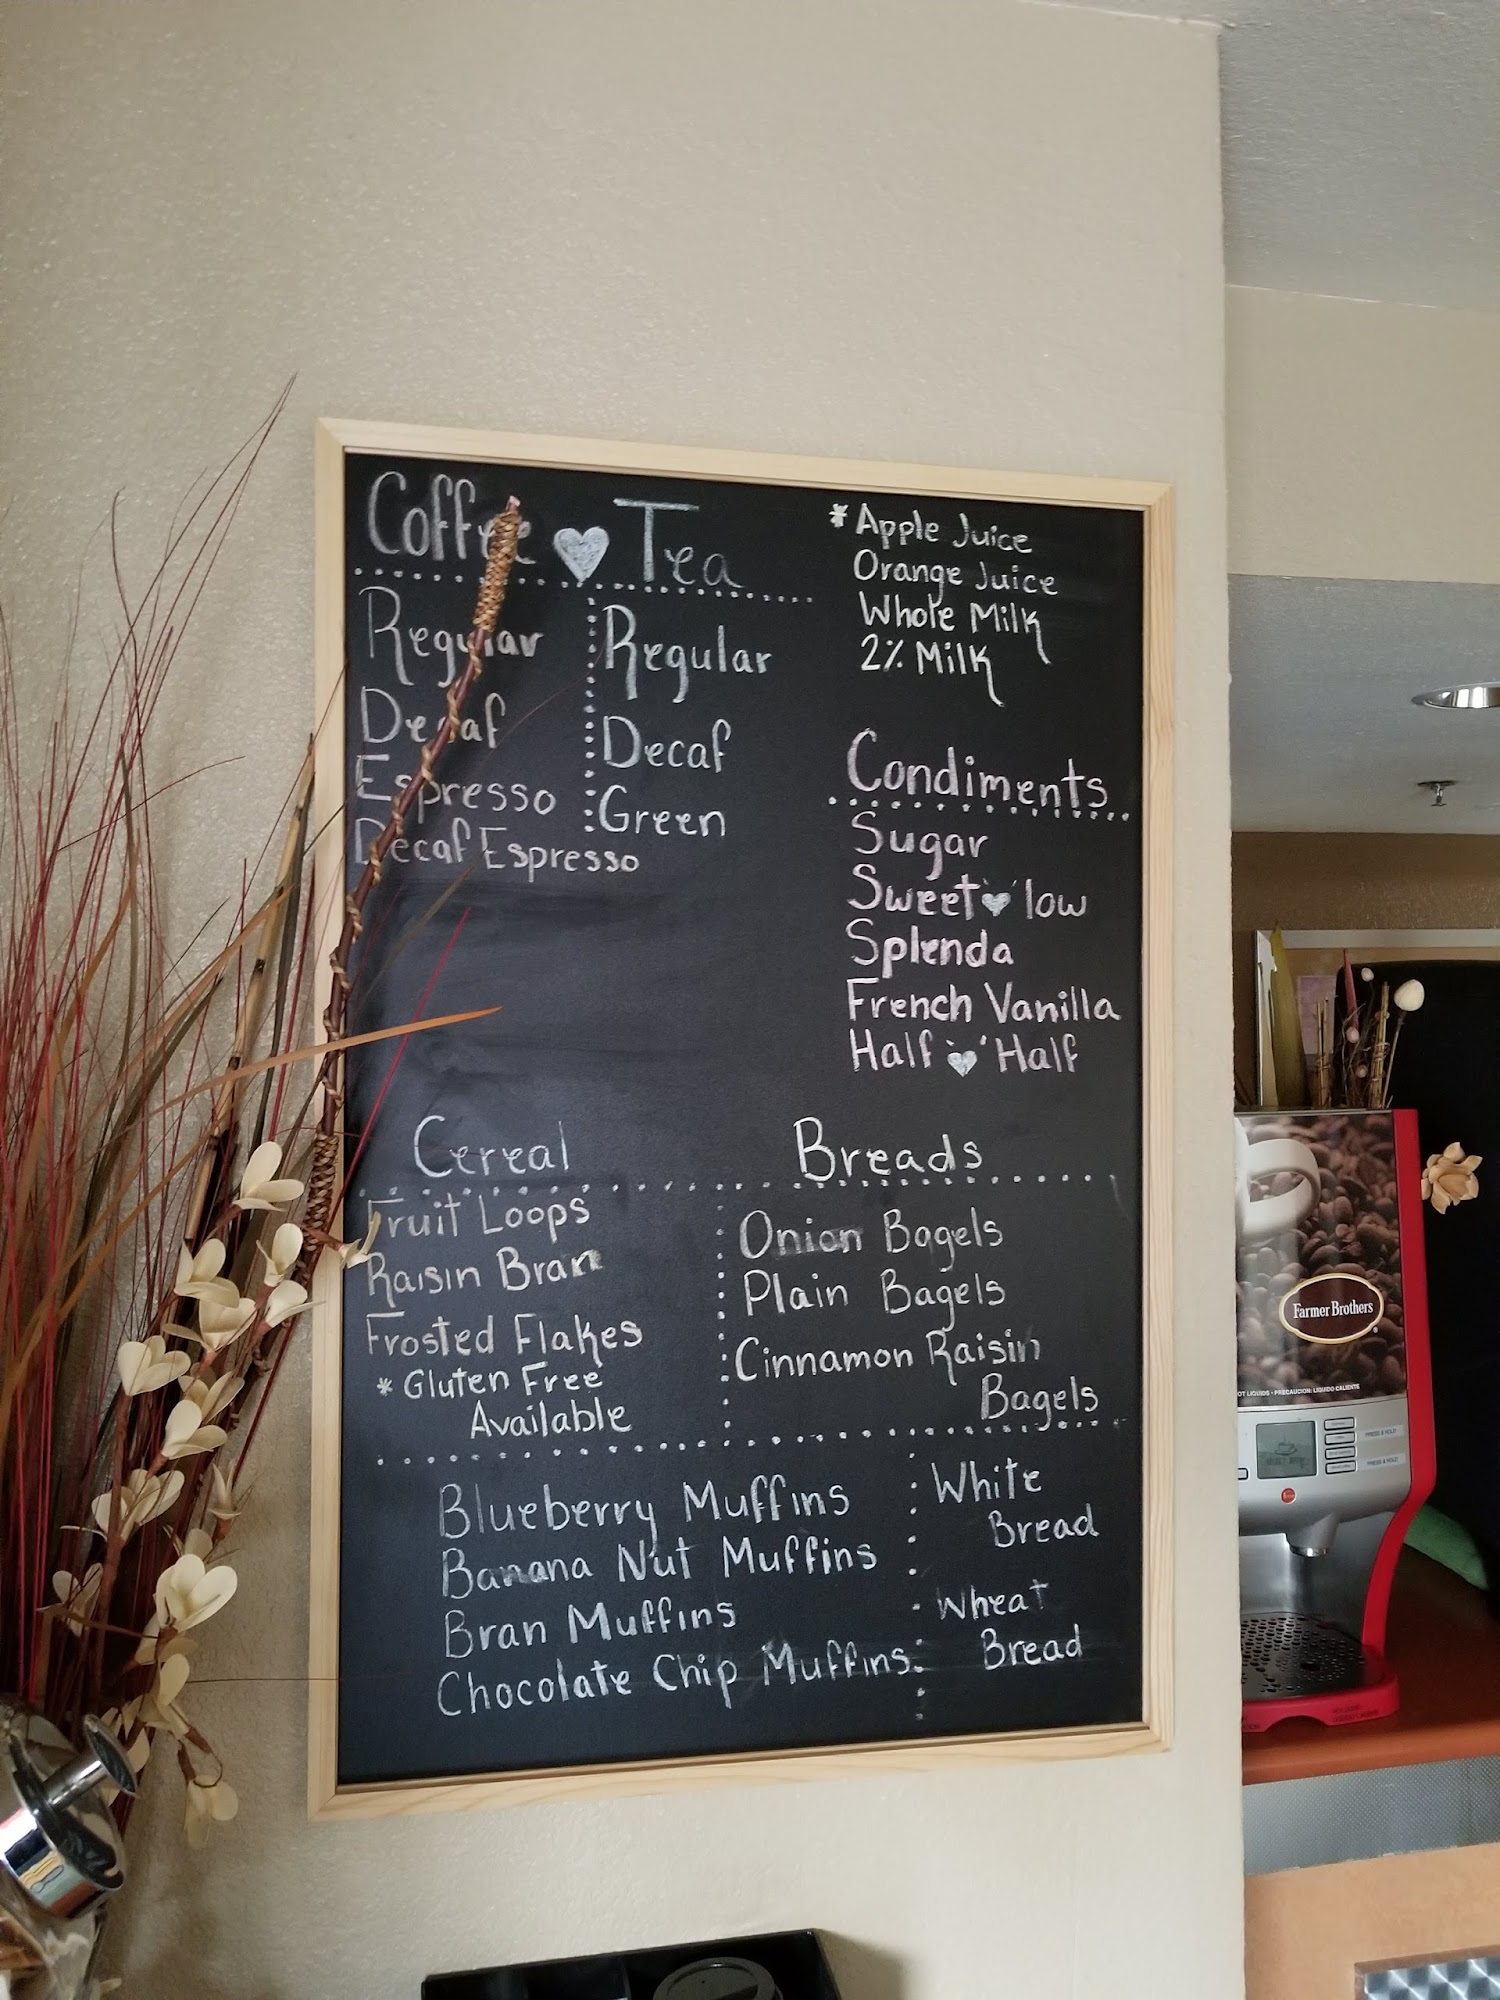 Coffee Tea
Regular
Decaf
Espresso
Decaf Espresso
Regular
Decaf
Green
* Apple Juice
Orange Juice
Whole Milk
2% Milk
Condiments
Sugar
Sweet low
Splenda
French Vanilla
Half Half
Cereal
Fruit Loops
Raisin Bran
Frosted Flakes
* Gluten Free
Available
Breads
Onion Bagels
Plain Bagels
Cinnamon Raisin
Bagels
Blueberry Muffins
Banana Nut Muffins
Bran Muffins
Chocolate Chip Muffins
White
Bread
Wheat
Bread
Farmer Brothers
OT LIQUIDS • PRECAUCION: LIQUIDO CALIENTE
PRESS & HOLD
PRESS & HOLD